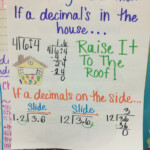 If a decimal's in the
house...
Raise It
To The
Roof!
If a decimal's on the side...
Slide
Slide
1.2 3.6
12 3.6
12 36
3
36
0